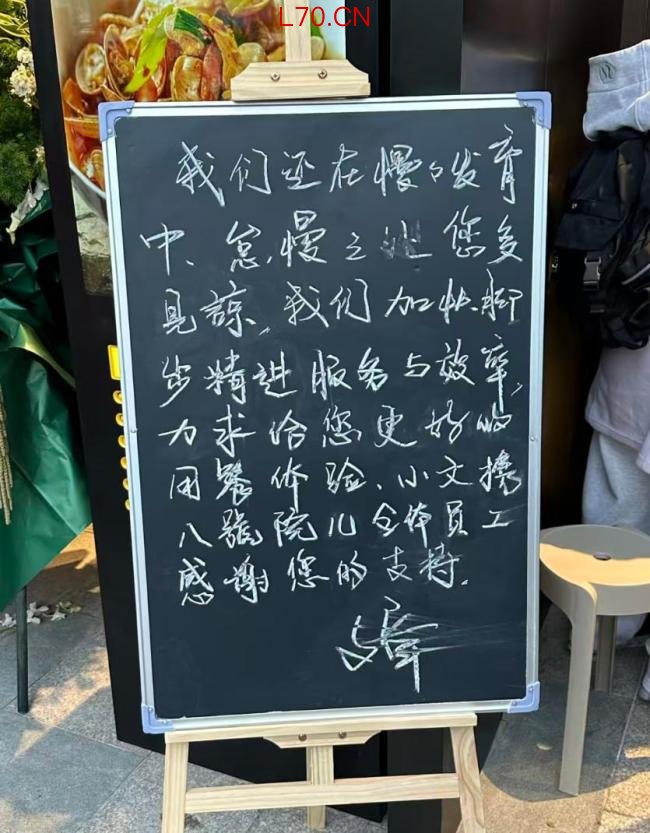 L70.CN
我们还在慢々发育
中、怠慢之处您多
見諒，我们加快脚
步精进服务与效率，
力求给您更好的
用餐体验、小文携
八號院儿全体員工
感谢您的支持。